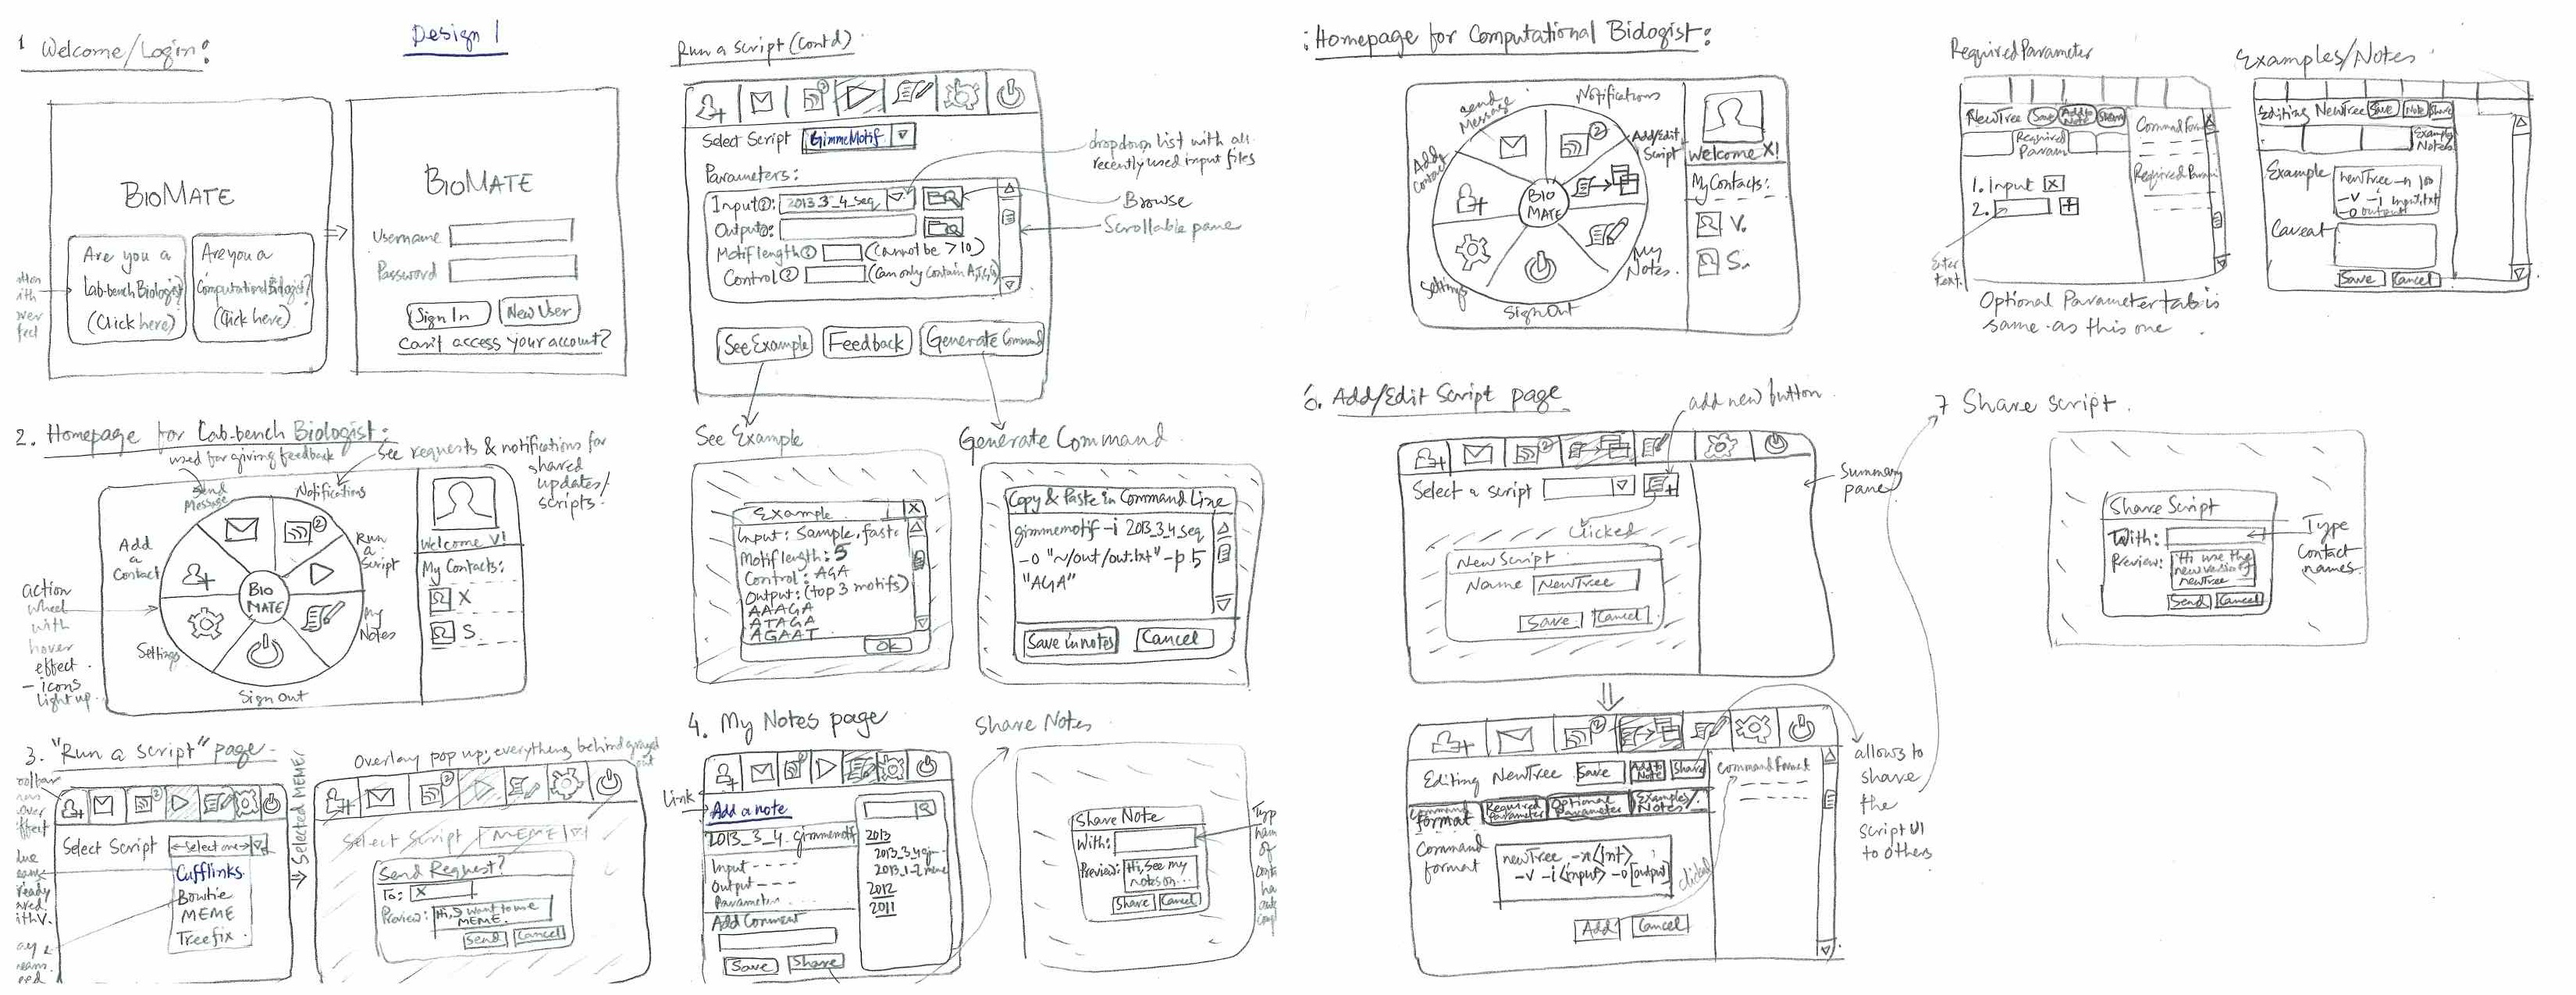 Design 1
1 Welcome/Login:
BIOMATE
Are you a
Lab-bench Biologist?
(Click here)
Are you a
Computational Biologist?
(Click here)
BIOMATE
Username
Password
Sign In
New User
Can't access your account?
2. Homepage for Lab-bench Biologist:
used for giving feedback
See requests & notifications for
shared
updates/
scripts.
Send
Message
Notifications
Add
a
Contact
Run
a
Script
My
Notes
Settings
Sign Out
BIO
MATE
2
Welcome V!
My Contacts:
X
S
action
wheel
with
hover
effect
- icons
light up
3. "Run a script" page
Select Script
<-Select one->
Cufflinks
Bowtie
MEME
Treefix
2
Selected MEME
Overlay pop up; everything behind grayed
out
2
Select Script MEME
Send Request?
To: X
Preview: Hi, I want to use
MEME.
Send
Cancel
Run a script (Contd)
2
Select Script GimmeMotif
Parameters:
Input?: 2013_3_4_seq
Output?:
Motif length? (Cannot be >10)
Control? (Can only contain A,T,C,G)
See Example
Feedback
Generate Command
dropdown list with all
recently used input files
Browse
Scrollable pane
See Example
Example X
Input: Sample.fasta
Motif length: 5
Control: AGA
Output: (top 3 motifs)
AAAGA
ATAGA
AGAAT
OK
Generate Command
Copy & Paste in Command Line
gimmemotif -i 2013_3_4_seq
-o "~/out/out.txt" -p 5
"AGA"
Save in notes
Cancel
4. My Notes page
Link
Add a note
2013_3_4_gimmemotif
Input ----
Output ---
Parameter
Add Comment
Save
Share
2013
2013_3_4gi--
2013_1_2meme
2012
2011
Share Notes
Share Note
With:
Preview: Hi, See my
notes on...
Share
Cancel
: Homepage for Computational Biologist:
Send
Message
Notifications
2
Add/Edit
Script
Add a
Contact
BIO
MATE
Settings
My
Notes.
Sign Out
Welcome X!
My Contacts:
V.
S.
Required Parameter
NewTree Save Add to
Note Share
Required
Param
Command Form
Required Param
1. Input X
2. +
Enter
text.
Optional Parameter tab is
same as this one.
Examples/Notes
Editing NewTree Save Note Share
Examples
Notes
Example newTree -n 100
-v -i input.txt
-o output
Caveat
Save
Cancel
6. Add/Edit Script page
add new button
2
Select a script
Summary
pane
Clicked
New Script
Name NewTree
Save
Cancel
2
Editing NewTree Save Add to
Note Share
Command
Format
Required
Parameter
Optional
Parameter
Examples/
Notes
Command
format
newTree -n<Int>
-v -i<input> -o[output]
Add
Cancel
clicked
Command Format
allows to
share
the
script UI
to others
7 Share script.
Share Script
With:
Preview: Hi use the
new version of
newtree
Send
Cancel
Type
Contact
names